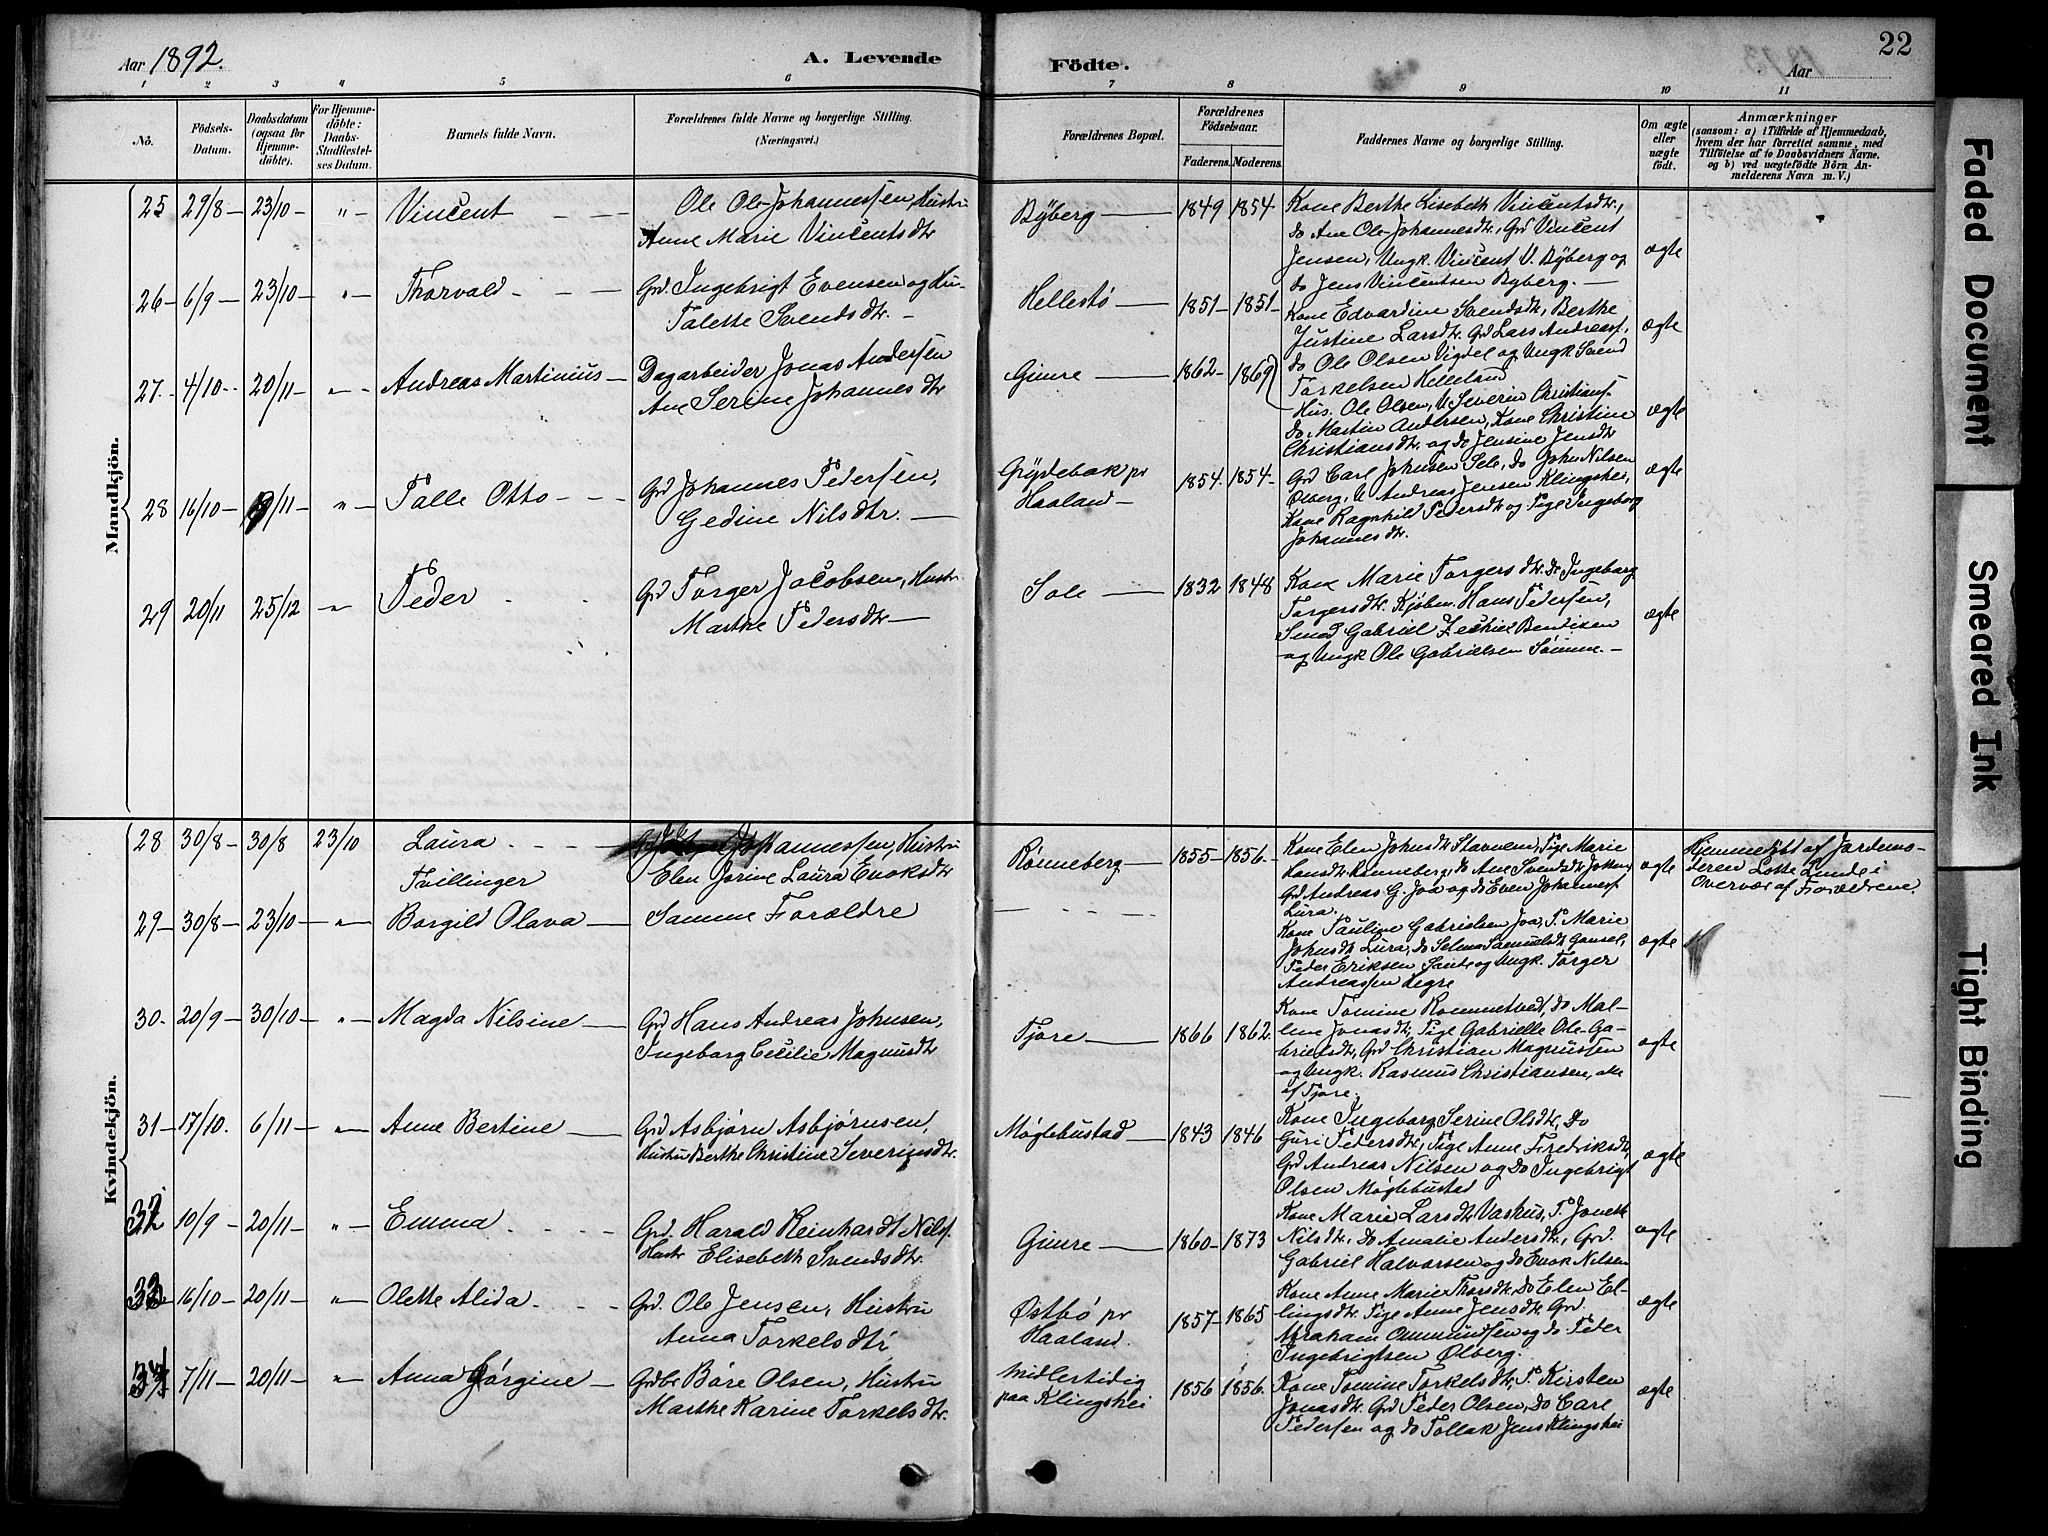 Aar 1892.
A. Levende Födte.
Aar
22
1 2 3 4 5 6 7 8 9 10 11
No.
Födsels-Datum.
Daabsdatum (ogsaa for Hjemme-döbte).
For Hjemme-döbte: Daabs-Stadfæstel-ses Datum.
Barnets fulde Navn.
Forældrenes fulde Navne og borgerlige Stilling. (Næringsvei.)
Forældrenes Bopæl.
Forældrenes Födselsaar.
Faderens. Moderens.
Faddernes Navne og borgerlige Stilling.
Om ægte eller uægte födt.
Anmærkninger
(saasom: a) i Tilfælde af Hjemmedaab, hvem der har forrettet samme, med Tilföielse af to Daabsvidners Navne, og b) ved uægtefödte Börn An-melderens Navn m. V.)
Mandkjön.
25 29/8 - 23/10 - " - Vincent
Ole Ole-Johannessen, Hustru
Anne Marie Vincentsdtr
Byberg 1849 1854
Kone Berthe Lisebeth Vincentsdtr,
do Ane Ole-Johannesdtr, Grd Vincent
Jensen, Ungk. Vincent V. Byberg og
do Jens Vincentsen Byberg. -
ægte
26 - 6/9 - 23/10 - " - Thorvald
Grd Ingebrigt Evensen og Hu-
Talette Svendsdtr. -
Hellestø 1851 - 1851
Kone Edvardine Svendsdtr, Berthe
Justine Larsdtr, Grd Lars Andreass.,
do Ole Olsen Vigdel og Ungk Svend
Torkelsen Helleland
ægte
27. 4/10 - 20/11 - " - Andreas Martinius
Dagarbeider Jonas Andersen
Ane Serine Johannesdtr
Gimre 1862 - 1869
Hus. Ole Olsen, U. Severin Christians.
do Martin Andersen, Kone Christine
Christiansdtr. og do Jensine Jensdtr
ægte
28 16/10 - /11 - " - Talle Otto
Grd Johannes Pedersen,
Gedine Nilsdtr.
Grydebak pr Haaland - 1854. 1854 -
Grd Carl Johnsen Sele, do John Nilsen
Ølberg, U Andreas Jensen Klingshei,
Kone Ragnhild Pedersdtr og Pige Ingeborg
Johannesdtr.
ægte
29 20/11 25/12 - " - Peder
Grd Torger Jacobsen, Hustr.
Marthe Pedersdtr
Sole 1832 1848
Kone Marie Torgersdtr. do Ingeborg
Torgersdtr. Kjøbm. Hans Pedersen,
Smed Gabriel Zeckiel Bendixen
og Ungk Ole Gabrielsen Sømme. -
ægte
Kvindekjön.
28 30/8 - 30/8 23/10 Laura
Tvillinger
Johannessen, Hustru
Elen Jorine Laura Enoksdtr
Rønneberg 1855 - 1856 -
Kone Elen Johnsdtr Stavnem, Pige Marie
Hansdtr Rønneberg, do Ane Svendsdtr
Grd Andreas G. Joa og do Even Johanness.
Lura.
ægte
Hjemmedøbt af Jordemo-
deren Lotte Lunde i
Overvær af Forældrene.
29 - 30/8 - 23/10 - " - Borgild Olava
Samme Forældre
Kone Pauline Gabrielsen Joa, P. Marie
Johnsdtr Lura, do Selma Samuelsdtr Gausel,
Peder Eriksen Sande og Ungk. Torger
Andreassen Legre
ægte
30. 20/9 - 30/10 - " - Magda Nilsine
Grd Hans Andreas Johnsen,
Ingeborg Cecilie Magnusdtr
Tjore 1866 1862
Kone Tomine Rommetvedt, do Mal-
ene Jonasdtr, Pige Gabrielle Ole-Ga-
brielsdtr, Grd Christian Magnussen
og Ungk. Rasmus Christiansen, alle
af Tjore.
ægte
31 - 17/10. 6/11 - " - Anne Bertine
Grd Asbjørn Asbjørnsen,
Hustru Berthe Christine Severinsdtr.
Møglebustad 1843 1846
Kone Ingeborg Serine Olsdtr, do
Guri Pedersdtr, Pige Anne Fredriksdtr,
Grd Andreas Nilsen og do Ingebrigt
Olsen Møglebustad
ægte
32 10/9 - 20/11 - " - Emma
Grd. Harald Reinhardt Nils.
Hustr Elisebeth Svendsdtr.
Gimre 1860 - 1873
Kone Marie Larsdtr Vaskus, P. Jonette
Nilsdtr, do Amalie Andersdtr, Grd.
Gabriel Halvorsen og do Enok Nilsen
ægte
33 16/10 - 20/11 - " - Olette Alida
Grd. Ole Jensen, Hustru
Anna Torkelsdtr
Østbø pr Haaland. 1857 - 1865
Kone Anne Marie Thorsdtr, do Elen El-
lingsdtr, Pige Anne Jensdtr, Grd.
Abraham Ommundsen og do Peder
Ingebrigtsen Ølberg.
ægte
34 7/11 - 20/11 - " - Anna Gørgine
Grdbr Børe Olsen, Hustru
Marthe Karine Torkelsdtr.
Midlertidig paa Klingshei 1856 1856.
Kone Tomine Torkelsdtr, P. Kirsten
Jonasdtr. Grd Peder Olsen, do Carl
Pedersen og do Tollak Jens. Klingshei
ægte
Faded Document
Smeared Ink
Tight Binding